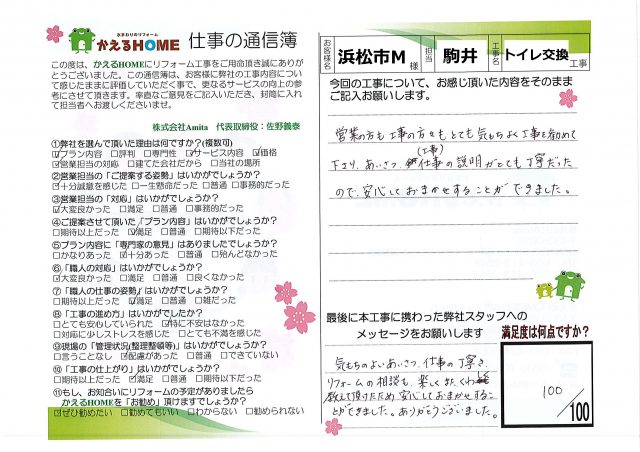 水まわりのリフォーム
かえるHOME 仕事の通信簿
この度は、かえるHOMEにリフォーム工事をご用命頂き誠にありがとうございました。この通信簿は、お客様に弊社の工事内容について感じたままに評価していただく事で、更なるサービスの向上の参考にさせて頂きます。率直なご意見をご記入いただき、封筒に入れて担当者へお渡しくださいませ。
株式会社Amita 代表取締役：佐野義泰
①弊社を選んで頂いた理由は何ですか?(複数可)
☑プラン内容 □評判 □専門性 ☑サービス内容 ☑価格
☑営業担当の対応 □建てた会社だから □当社の場所
②営業担当の「ご提案する姿勢」はいかがでしょうか？
☑十分誠意を感じた □一生懸命だった □普通 □事務的だった
③営業担当の「対応」はいかがでしょうか？
☑大変良かった □満足 □普通 □事務的だった
④ご提案させて頂いた「プラン内容」はいかがでしょうか？
□期待以上だった ☑満足 □普通 □期待以下だった
⑤プラン内容に「専門家の意見」はありましたでしょうか？
□かなりあった ☑十分あった □普通 □殆んどなかった
⑥「職人の対応」はいかがでしょうか？
☑大変良かった □満足 □普通 □良くなかった
⑦「職人の仕事の姿勢」はいかがでしょうか？
□期待以上だった ☑満足 □普通 □雑だった
⑧「工事の進め方」はいかがでしたか？
□とても安心していられた ☑特に不安はなかった
□対応に少しストレスを感じた □とても不満を感じた
⑨現場の「管理状況(整理整頓等)」はいかがでしょうか？
□言うことなし ☑配慮があった □普通 □できていない
⑩「工事の仕上がり」はいかがでしょうか？
□期待以上だった ☑満足 □普通 □期待以下だった
⑪もし、お知合いにリフォームの予定がありましたら
かえるHOMEを「お勧め」頂けますでしょうか？
☑ぜひ勧めたい □勧めてもいい □わからない □勧められない
お客様名 浜松市M 様 担当 駒井 工事名 トイレ交換 工事
今回の工事について、お感じ頂いた内容をそのまま
ご記入お願いします。
営業の方も工事の方々もとても気もちよく工事を勧めて
(工事)
下さり、あいさつ、仕事の説明がとても丁寧だった
ので、安心しておまかせすることができました。
最後に本工事に携わった弊社スタッフへの
メッセージをお願いします
気もちのよいあいさつ、仕事の丁寧さ、
リフォームの相談も、楽しく、またくわしく
教えて頂けたため、安心しておまかせするこ
とができました。ありがとうございました。
満足度は何点ですか？
100
/100